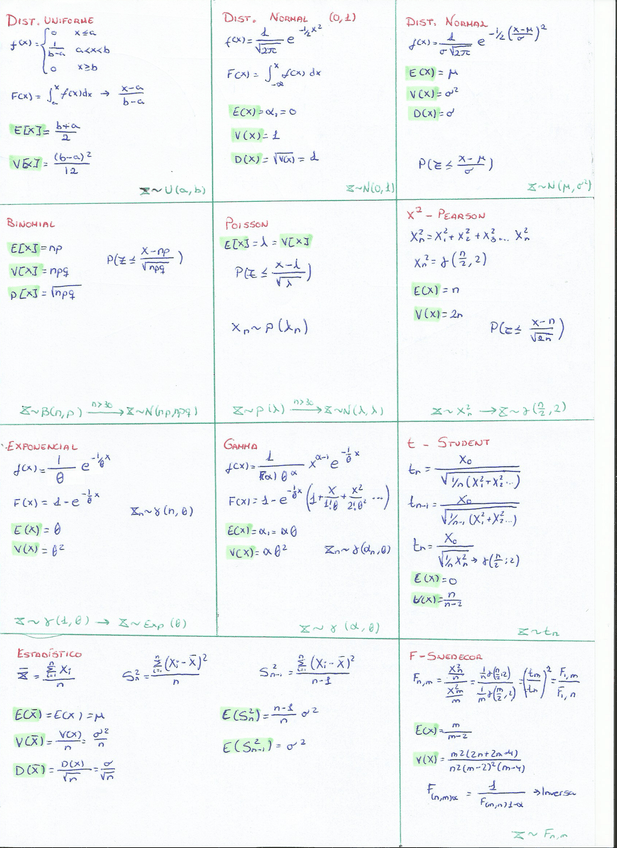 DIST. UNIFORME
f(x) = { 0 x≤a
1/(b-a) a<x<b
0 x≥b
F(x) = ∫ₐˣ f(x)dx → (x-a)/(b-a)
E[X] = (b+a)/2
V[X] = (b-a)²/12
Z~U(a,b)
DIST. NORMAL (0,1)
f(x) = 1/√2π e^(-1/2 x²)
F(x) = ∫₋∞ˣ f(x) dx
E(X) = α₁ = 0
V(X) = 1
D(X) = √V(X) = 1
Z~N(0,1)
DIST. NORMAL
f(x) = 1/(σ√2π) e^(-1/2 ((x-μ)/σ)²)
E(X) = μ
V(X) = σ²
D(X) = σ
P(Z ≤ (x-μ)/σ)
Z~N(μ,σ²)
BINOMIAL
E[X] = np
V[X] = npq
D[X] = √npq
P(Z ≤ (x-np)/√npq)
Z~B(n,p) n>30 → Z~N(np,npq)
POISSON
E[X] = λ = V[X]
P(Z ≤ (x-λ)/√λ)
Xn ~ P(λn)
Z~P(λ) n>30 → Z~N(λ,λ)
X² - PEARSON
Xn² = X₁² + X₂² + X₃² ... Xn²
Xn² = γ(n/2, 2)
E(X) = n
V(X) = 2n
P(Z ≤ (x-n)/√2n)
Z~Xn² → Z~γ(n/2, 2)
EXPONENCIAL
f(x) = 1/θ e^(-1/θ x)
F(x) = 1 - e^(-1/θ x)
Zn~γ(n,θ)
E(X) = θ
V(X) = θ²
Z~γ(1,θ) → Z~Exp(θ)
GAMMA
f(x) = 1/(Γ(α) θ^α) x^(α-1) e^(-1/θ x)
F(x) = 1 - e^(-1/θ x) (1 + x/1!θ + x²/2!θ ...)
E(X) = α₁ = αθ
V(X) = αθ²
Zn~γ(αn,θ)
Z~γ(α,θ)
t - STUDENT
tn = X₀/√(1/n (X₁²+X₂²...))
tn-1 = X₀/√(1/n-1 (X₁²+X₂²...))
tn = X₀/√(1/n Xn²) → γ(n/2; 2)
E(X) = 0
V(X) = n/(n-2)
Z~tn
ESTADÍSTICO
X̄ = Σ Xi / n
Sn² = Σ (Xi - X̄)² / n
Sn-1² = Σ (Xi - X̄)² / (n-1)
E(X̄) = E(X) = μ
V(X̄) = V(X)/n = σ²/n
D(X̄) = D(X)/√n = σ/√n
E(Sn²) = (n-1)/n σ²
E(Sn-1²) = σ²
F-SNEDECOR
E(X) = m/(m-2)
V(X) = m²(2n+2m-4) / n²(m-2)²(m-4)
F(n,m)α = 1/F(m,n)1-α → Inversa